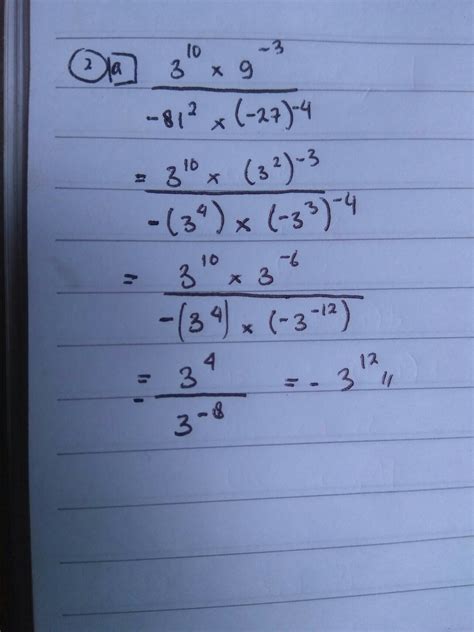 ② a 3¹⁰ × 9⁻³ / -81² × (-27)⁻⁴
= 3¹⁰ × (3²)⁻³ / -(3⁴) × (-3³)⁻⁴
= 3¹⁰ × 3⁻⁶ / -(3⁴) × (-3⁻¹²)
= 3⁴ / 3⁻⁸ = - 3¹² //